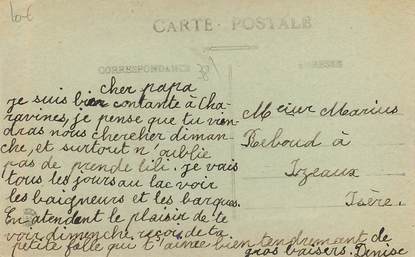 10€
CARTE - POSTALE
CORRESPONDANCE
38
ADRESSE
cher papa
je suis bien contante à Cha-
ravines, je pense que tu vien-
dras nous chercher diman-
che, et surtout n'oublie
pas de prende lili. je vais
tous les jours au lac voir
les baigneurs et les barques.
En atendent le plaisir de te
voir dimenche, reçois de ta
petite folle qui t'aimée bien tendrement de
gros baisers. Denise
Mcieur Marius
Reboud à
Izeaux
Isère.